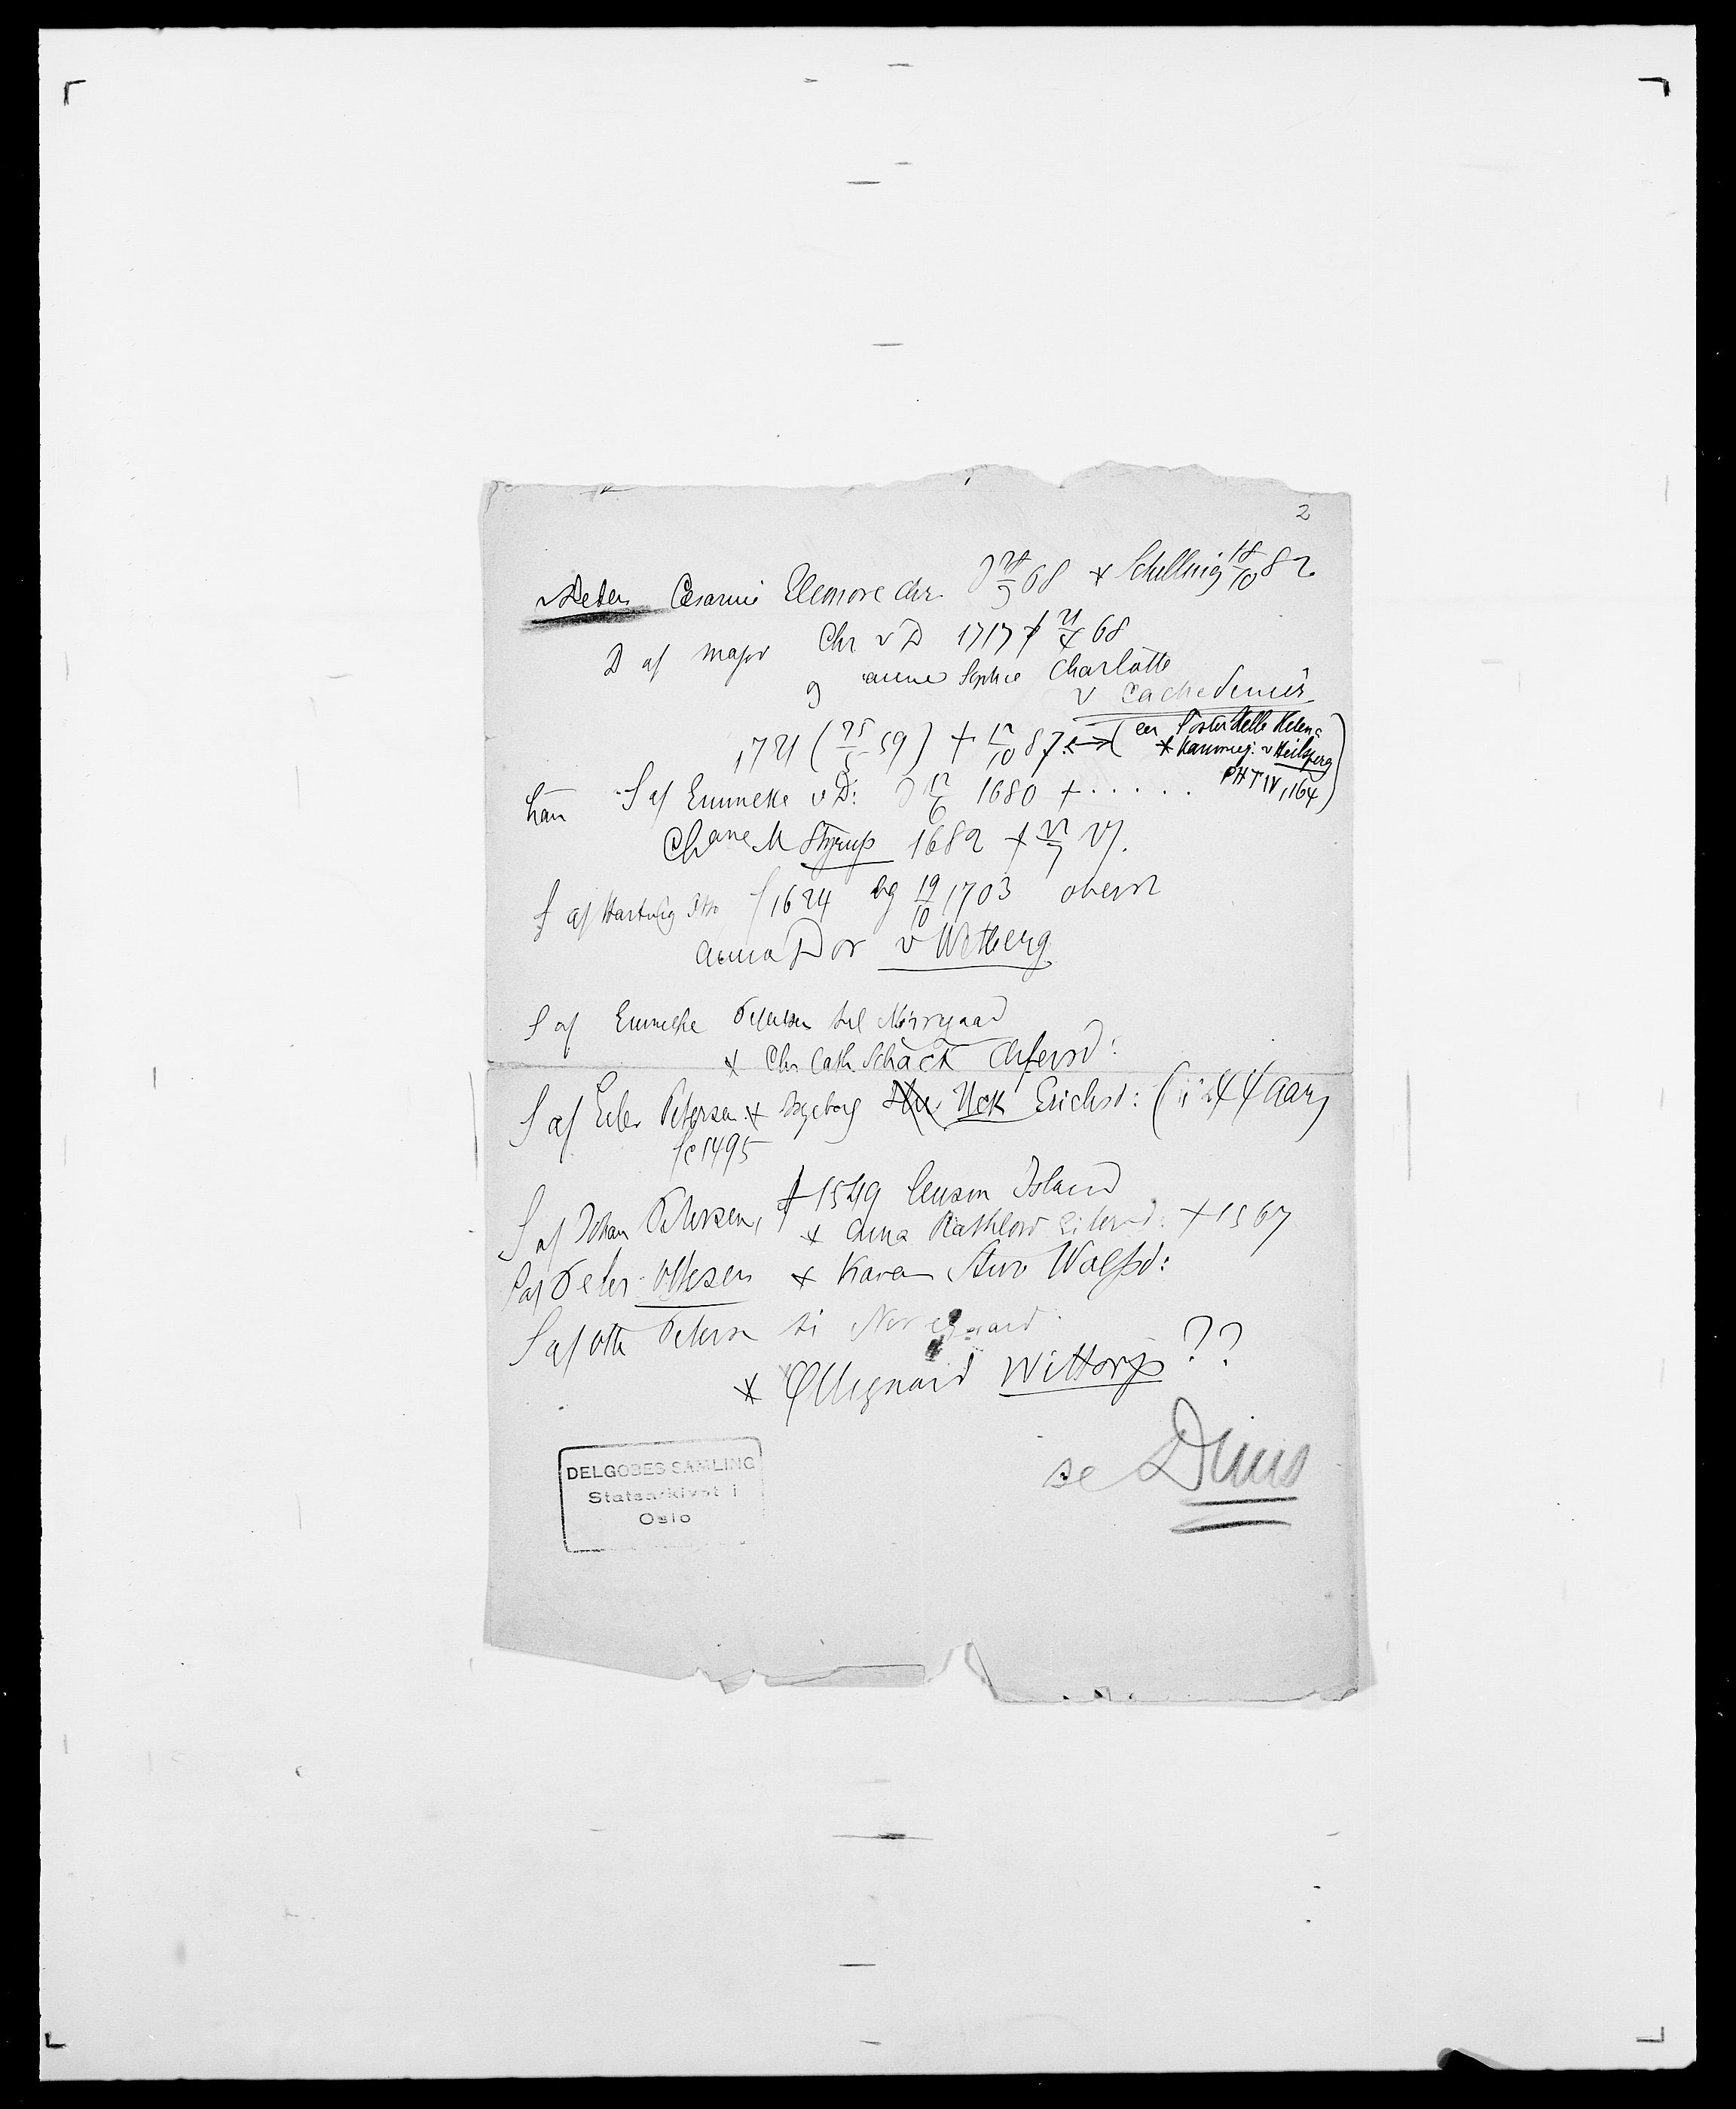 2
v Deden Cesarine Eleonore Chr. D 68 * Schilling 18/10 82
D af Major Chr v D 1717 † 21/4 68
g anne Sophie Charlotte
v Cachedenier
1721 (25/5 59) † 12/10 87 (en Søster Helle Helena
* Kammerj: v Heilsperg
PHT IV, 164)
han S af Emmeke v D: D 12/6 1680 † . . . . .
Chr ane M Styrup 1682 † 22/7 27.
S af Hartvig Otto f 1624 bg 19/10 1703 oberst
anna Dor v Wetberg
S af Emmeke Petersen til Nörregaard
* Chr Cath Schack
S af Petersen * Ingeborg Uck Erichsd: (i 44 Aar)
f c 1495
S af Johan Petersen, † 1549 lensm Island
* Anna Rathlow † 1567
S af Peter Ottesen * Karen Wolfsd:
S af Otte Petersen ti Nörregaard
* Ollegaard Wittorp ??
se Dens
DELGOBES SAMLING
Statsarkivet i
Oslo